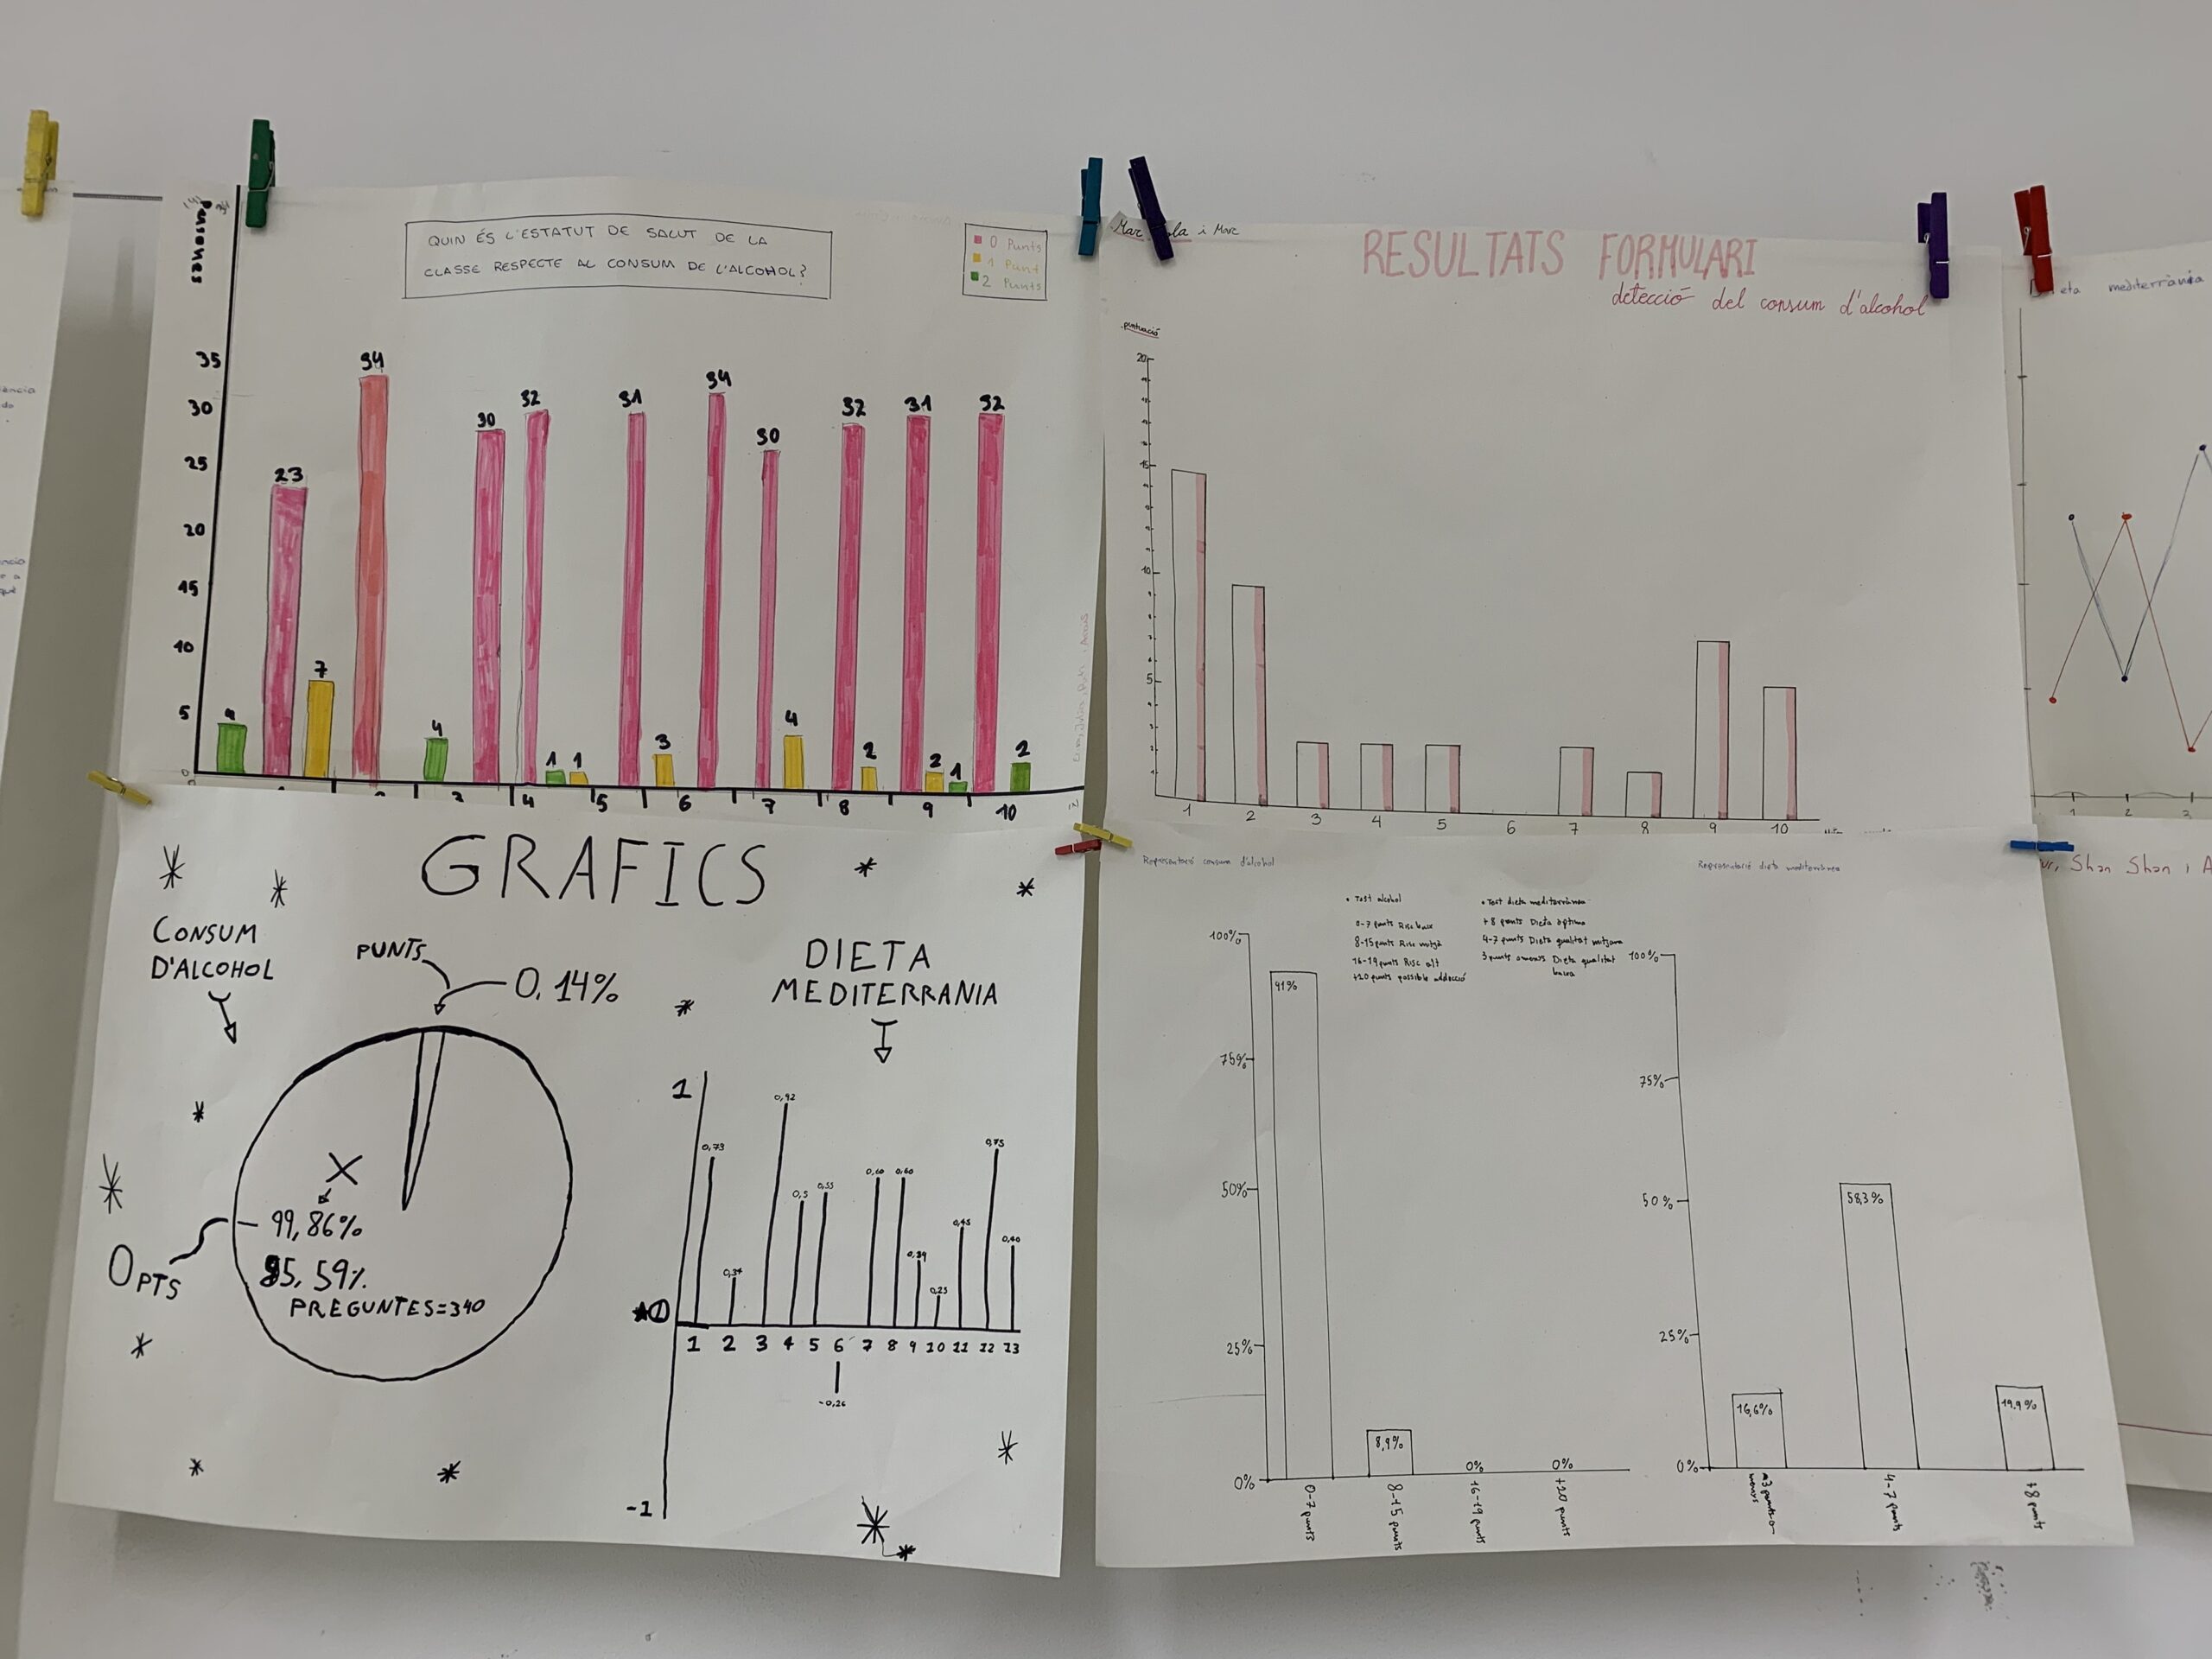 Persones
QUIN ÉS L'ESTATUT DE SALUT DE LA
CLASSE RESPECTE AL CONSUM DE L'ALCOHOL?
0 Punts
1 Punt
2 Punts
35
30
25
20
15
10
5
0
4
23
7
34
4
30
32
1
1
31
3
34
30
4
32
2
31
2
1
32
2
3
4
5
6
7
8
9
10
Mar
i Marc
RESULTATS FORMULARI
detecció del consum d'alcohol
puntuació
20
15
10
5
1
2
3
4
5
6
7
8
9
10
Dieta mediterrània
1
2
3
GRAFICS
CONSUM
D'ALCOHOL
PUNTS
0,14%
X
99,86%
95,59%
PREGUNTES=340
0 PTS
DIETA
MEDITERRANIA
1
0,73
0,92
0,5
0,55
0,60
0,60
0,25
0,45
0,75
0,40
0
1 2 3 4 5 6 7 8 9 10 11 12 13
-0,26
-1
Representació consum d'alcohol
Representació dieta mediterrànea
• Test alcohol
0-7 punts Risc baix
8-15 punts Risc mitjà
16-19 punts Risc alt
+20 punts possible addicció
• Test dieta mediterrànea
+8 punts Dieta òptima
4-7 punts Dieta qualitat mitjana
3 punts o menys Dieta qualitat
baixa
100%
75%
50%
25%
0%
91%
8,9%
0%
0%
0-7 punts
8-15 punts
16-19 punts
+20 punts
100%
75%
50%
25%
0%
16,6%
58,3%
19,9%
4-7 punts
+8 punts
Shan Shan i A